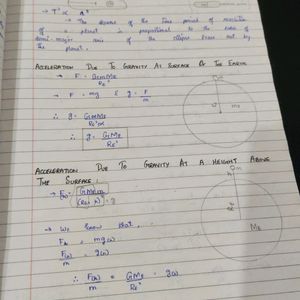 → T² ∝ a³
→ The square of the time period of revolution
of a planet is proportional to the cube of
semi-major axis of the ellipse traced out by
the planet.
ACCELERATION DUE TO GRAVITY AT SURFACE OF THE EARTH
→ F = GmME / RE²
m
→ F = mg & g = F/m
ME
∴ g = GmME / RE²m
∴ g = GME / RE²
ACCELERATION DUE TO GRAVITY AT A HEIGHT ABOVE
THE SURFACE.
m
h
→ F(h) = GMEm / (RE+h)²
RE
→ We know that,
F(h) = mg(h)
ME
F(h)/m = g(h)
∴ F(h)/m = GME / RE² = g(h)